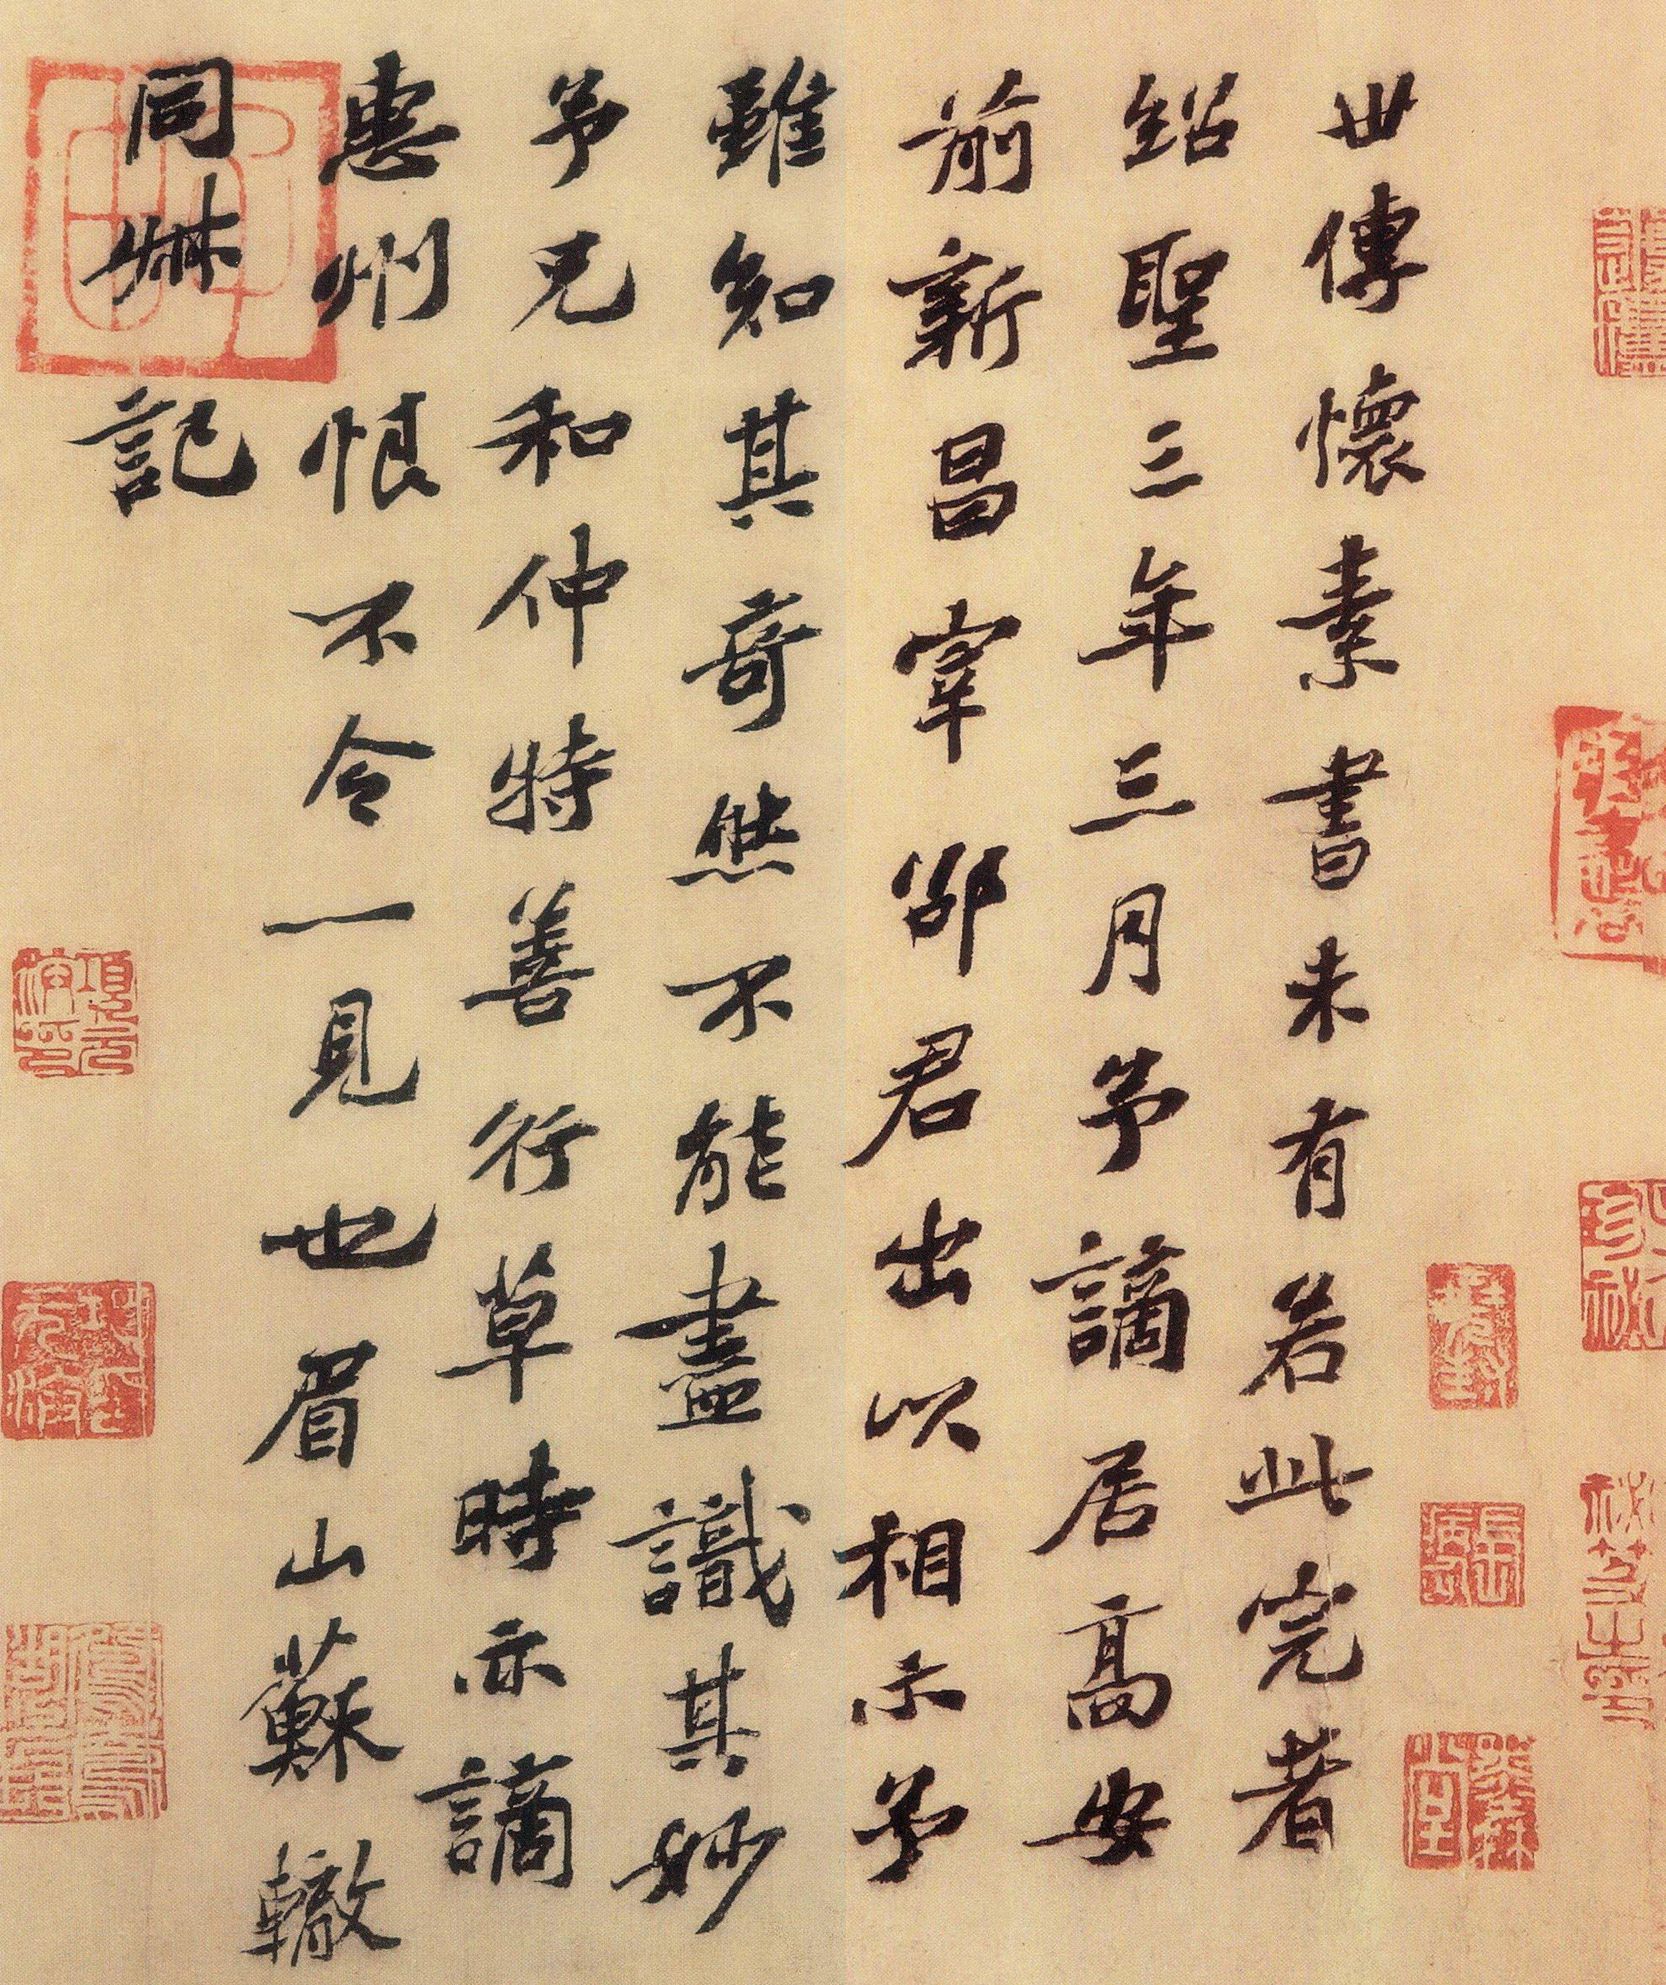 世傳懷素書未有若此完者
紹聖三年三月予謫居高安
前新昌宰邵君出以相示予
雖知其奇然不能盡識其妙
予兄和仲特善行草時亦謫
惠州恨不令一見也眉山蘇轍
同叔記
項元汴印